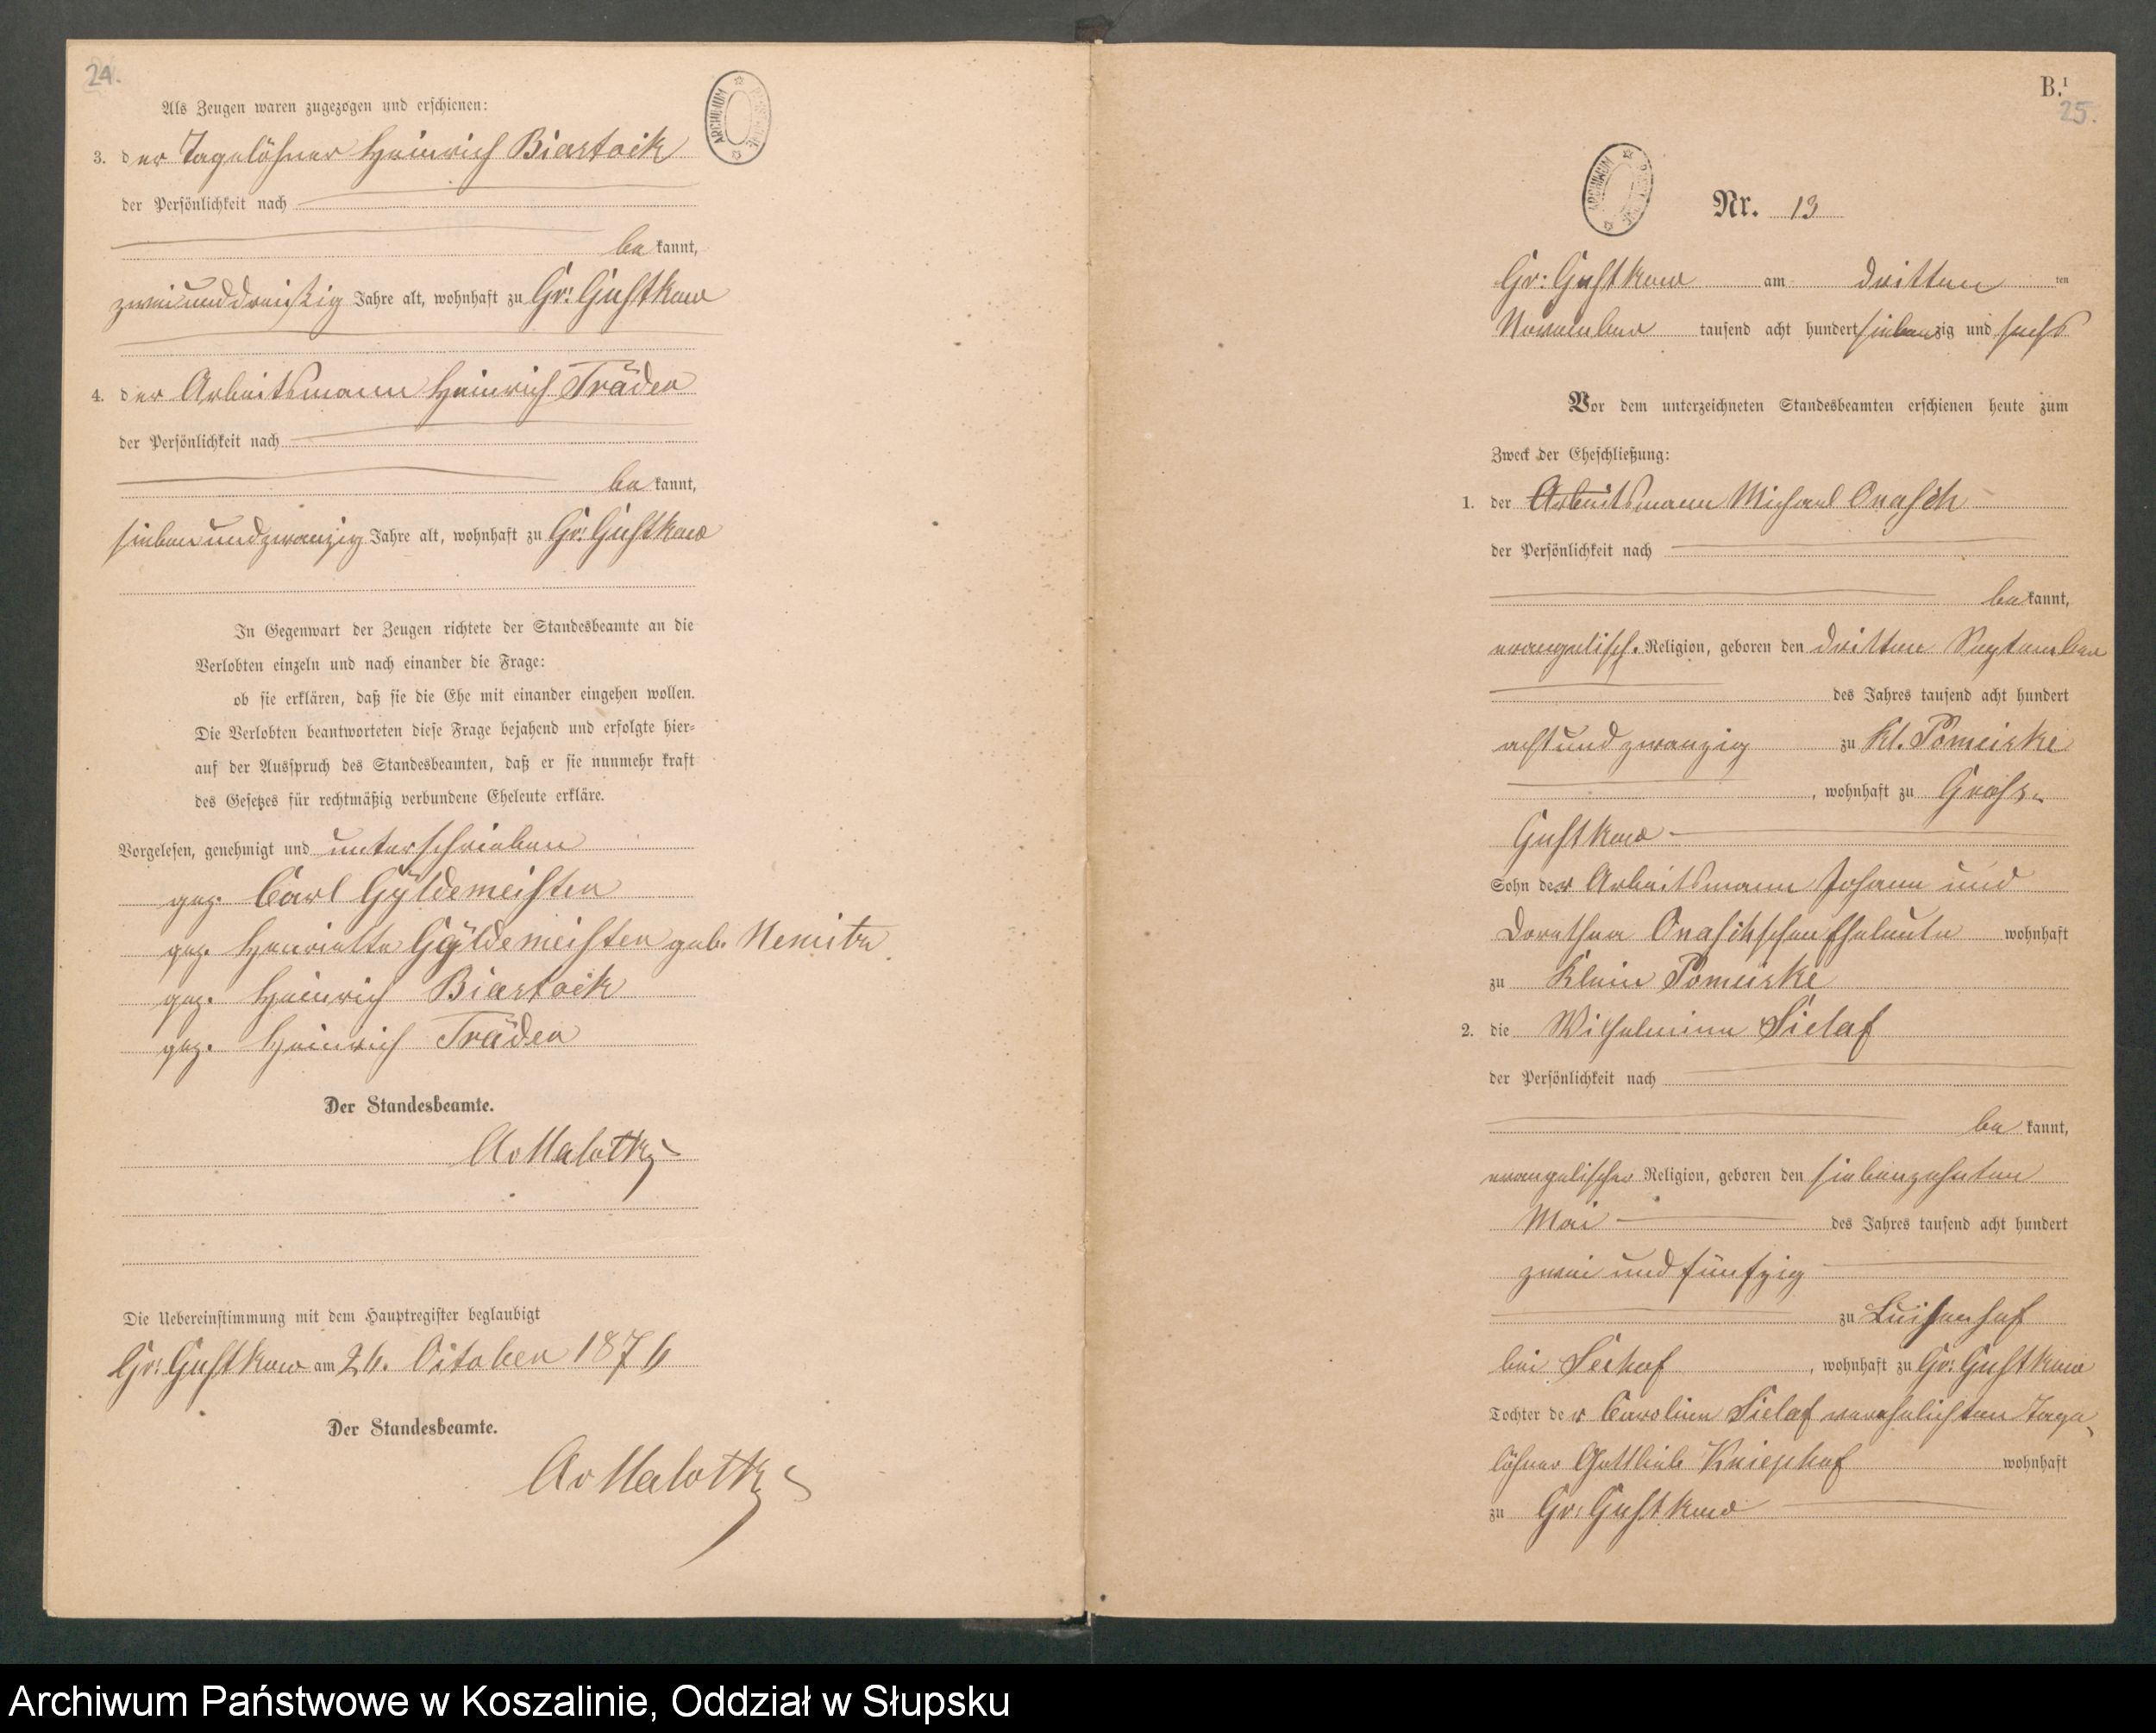 24.
Als Zeugen waren zugezogen und erschienen:
3. der Tagelöhner Heinrich Biastoik
der Persönlichkeit nach
bekannt,
zweiunddreißig Jahre alt, wohnhaft zu Gr: Gustkow
4. der Arbeitsmann Heinrich Träder
der Persönlichkeit nach
bekannt,
siebenundzwanzig Jahre alt, wohnhaft zu Gr: Gustkow
In Gegenwart der Zeugen richtete der Standesbeamte an die
Verlobten einzeln und nach einander die Frage:
ob sie erklären, daß sie die Ehe mit einander eingehen wollen.
Die Verlobten beantworteten diese Frage bejahend und erfolgte hier-
auf der Ausspruch des Standesbeamten, daß er sie nunmehr kraft
des Gesetzes für rechtmäßig verbundene Eheleute erkläre.
Vorgelesen, genehmigt und unterschrieben
gez. Carl Gyldemeister
gez. Henriette Gyldemeister geb. Nemitz
gez. Heinrich Biastoik
gez. Heinrich Träder
Der Standesbeamte.
AvMalottky
Die Uebereinstimmung mit dem Hauptregister beglaubigt
Gr: Gustkow am 26. October 1876
Der Standesbeamte.
AvMalottky
B.¹
25.
ARCHIWUM
Nr. 13
Gr: Gustkow am dritten ten
November tausend acht hundert siebenzig und sechs
Vor dem unterzeichneten Standesbeamten erschienen heute zum
Zweck der Eheschließung:
1. der Arbeitsmann Michael Onasch
der Persönlichkeit nach
bekannt,
evangelisch. Religion, geboren den dritten September
des Jahres tausend acht hundert
achtundzwanzig zu Kl. Pomeiske
, wohnhaft zu Gross-
Gustkow
Sohn der Arbeitsmann Johann und
Dorothea Onasch'schen Eheleute wohnhaft
zu Klein Pomeiske
2. die Wilhelmine Sielaf
der Persönlichkeit nach
bekannt,
evangelischer Religion, geboren den siebenzehnten
Mai des Jahres tausend acht hundert
zwei und fünfzig
zu Luisenhof
bei Seehof, wohnhaft zu Gr: Gustkow
Tochter der Caroline Sielaf verehelichten Tage-
löhner Gottlieb Kniephof wohnhaft
zu Gr: Gustkow
Archiwum Państwowe w Koszalinie, Oddział w Słupsku